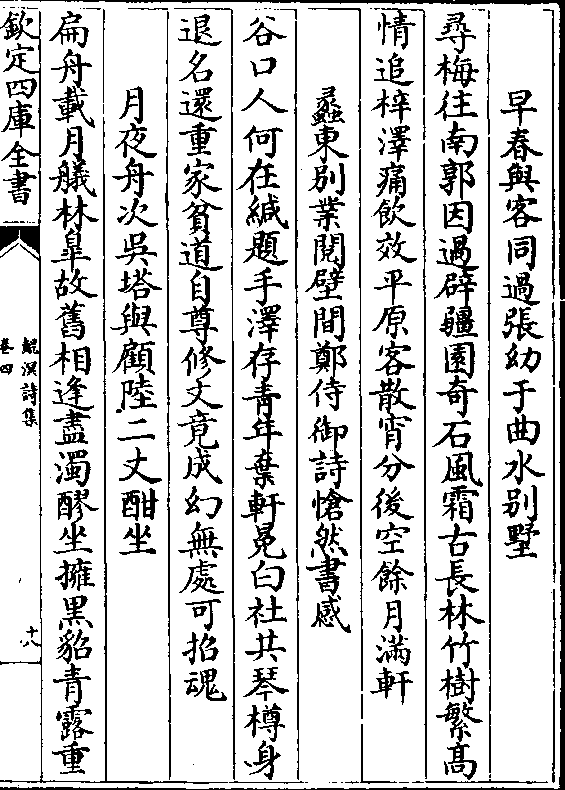 早春與客同過張幼于曲水别墅
尋梅往南郭因過辟疆園奇石風霜古長林竹樹繁高
情追梓澤痛飲效平原客散宵分後空餘月滿軒
蠡東别業閱壁間鄭侍御詩愴然書感
谷口人何在緘題手澤存青年棄軒冕白社共琴樽身
退名還重家貧道自尊修文竟成幻無處可招魂
月夜舟次吳塔與顧陸二丈酣坐
扁舟載月艤林臯故舊相逢盡濁醪坐擁黒貂青露重
欽定四庫全書
鯤溟詩集
卷四
十八